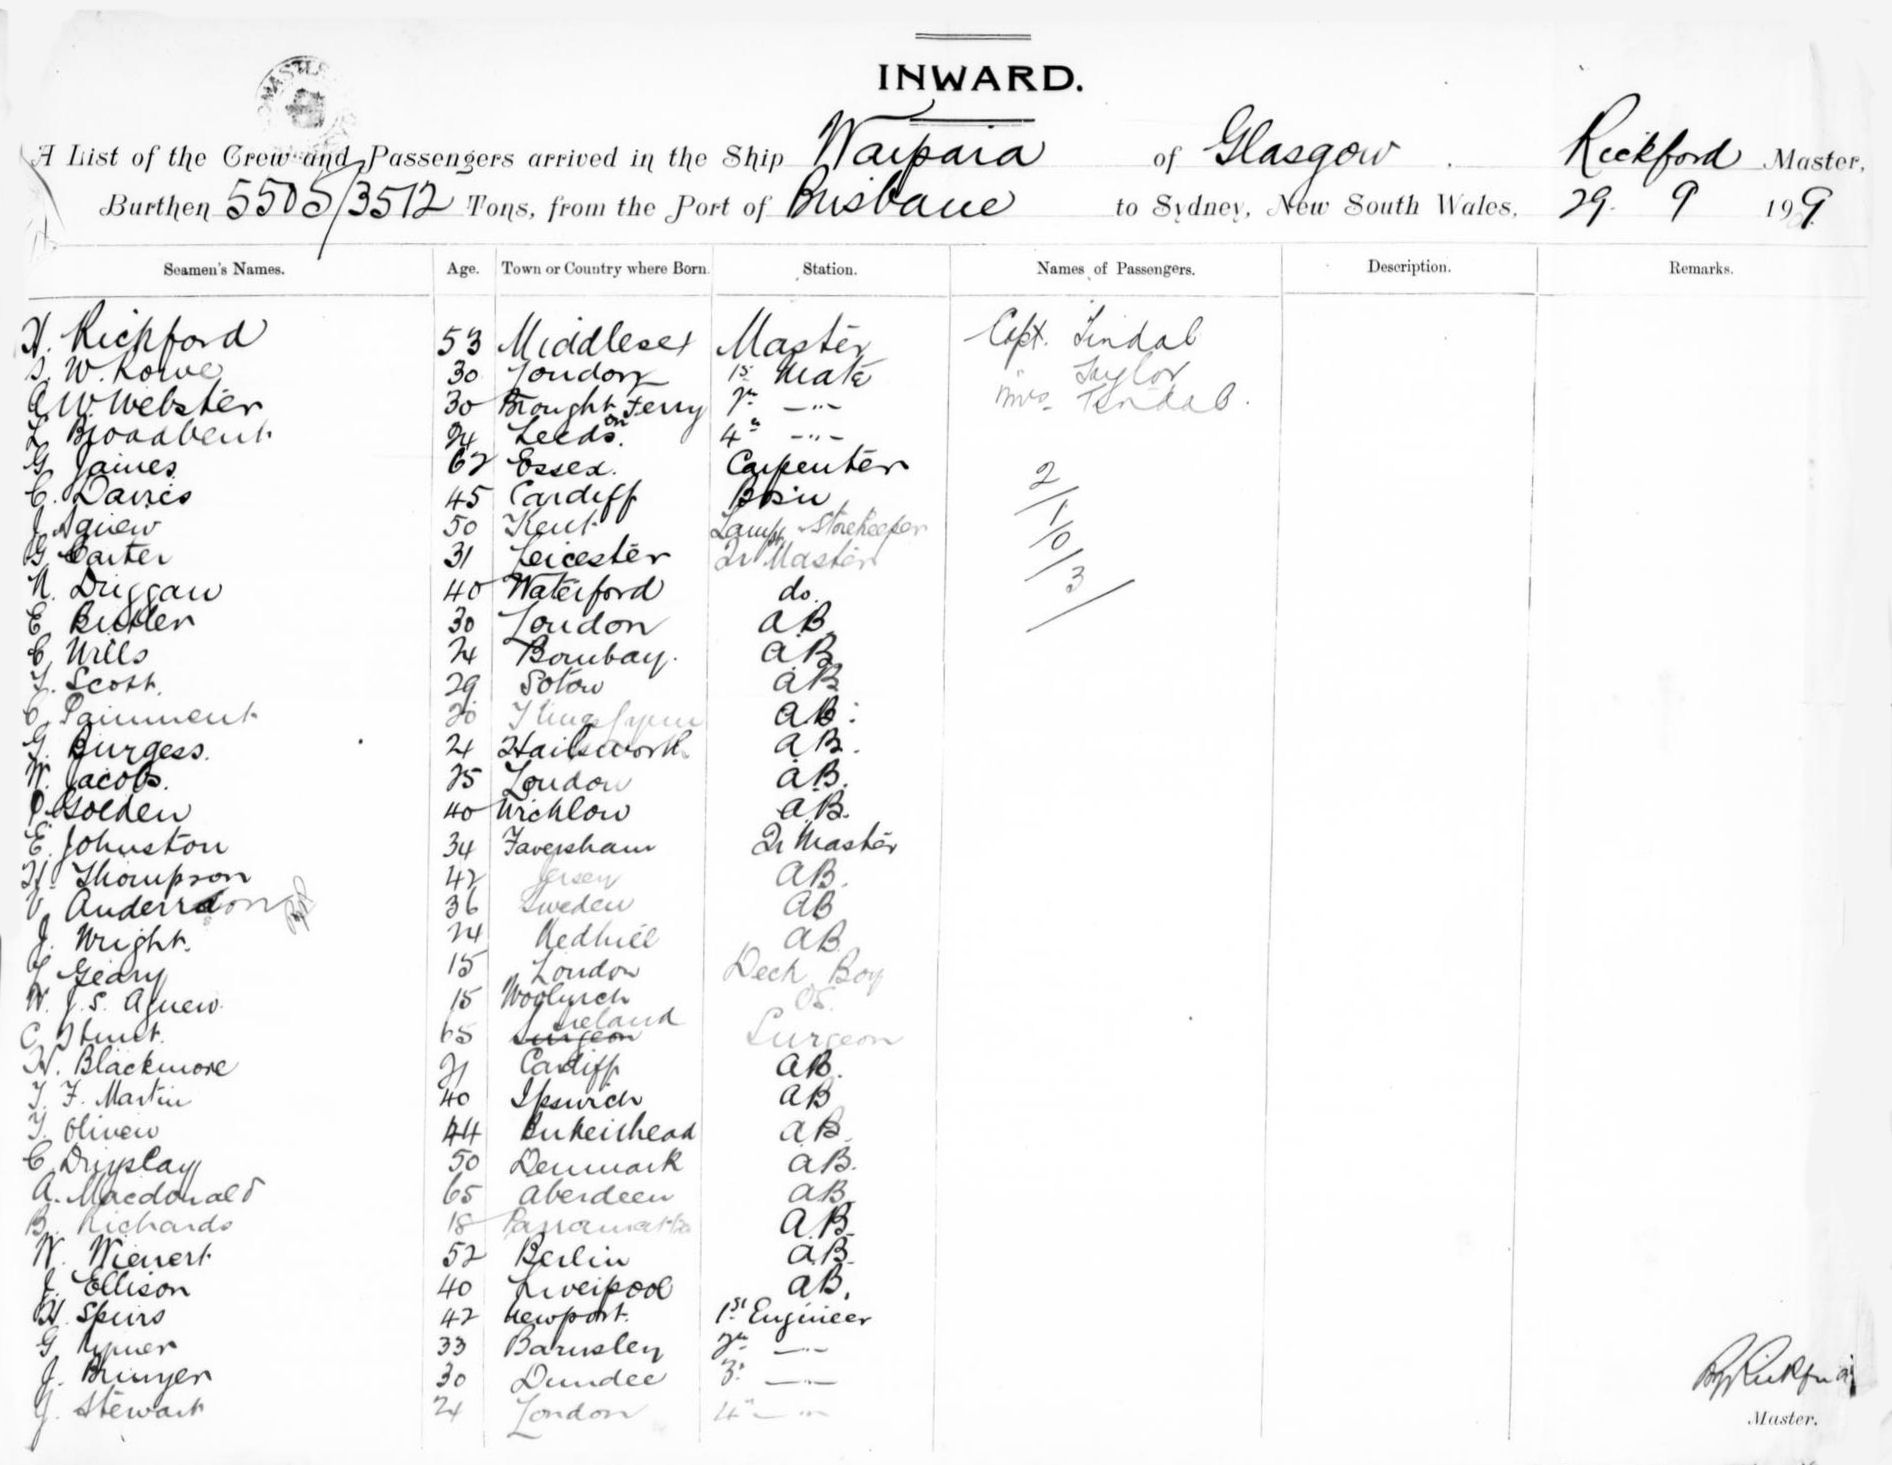 INWARD.
A List of the Crew and Passengers arrived in the Ship Waipara of Glasgow. Rickford Master,
Burthen 5505/3512 Tons, from the Port of Brisbane to Sydney, New South Wales, 29. 9 1909
Seamen's Names. Age. Town or Country where Born. Station. Names of Passengers. Description. Remarks.
H. Rickford 53 Middlesex Master Capt. Tindal
W. Rowe 30 London 1st Mate Taylor
A. W. Webster 30 Brought Ferry 2n —"— Mrs. Tindal.
L. Broadbent 24 Leeds. 4th —"—
G. James 62 Essex. Carpenter
C. Davies 45 Cardiff Bos'n 2/1/0/3/
J. Agnew 50 Kent Lamps Storekeeper
G. Carter 31 Leicester Qr Master
N. Driggan 40 Waterford do.
E Butler 30 London AB
C. Wills 24 Bombay. AB
T. Scott. 29 AB
C. 20 Kings Lynn AB.
G. Burgess. 24 AB.
W. Jacobs. 25 London AB.
Golden 40 Wicklow AB.
E. Johnston 34 Faversham Qr Master
H. Thompson 42 Jersey AB.
V. Anderson 36 Sweden AB
J. Wright. 24 Redhill AB
Geary 15 London Deck Boy
W. J. S. Agnew. 15 Woolwich OS.
C. Hunt. 65 surgeon Ireland Surgeon
H. Blackmore 21 Cardiff AB.
T. F. Martin 40 Ipswich AB
T. Oliver 44 Birkenhead AB.
C. Dryslay 50 Denmark AB.
A. Macdonald 65 Aberdeen AB.
B. Richards 18 Parramatta AB.
W. Wienert 52 Berlin AB.
J. Ellison 40 Liverpool AB.
H. Speirs 42 Newport. 1st Engineer
G. 33 Barnsley 2n —"—
J. 30 Dundee 3. —"—
J. Stewart 24 London 4th —"—
Rickford
Master.